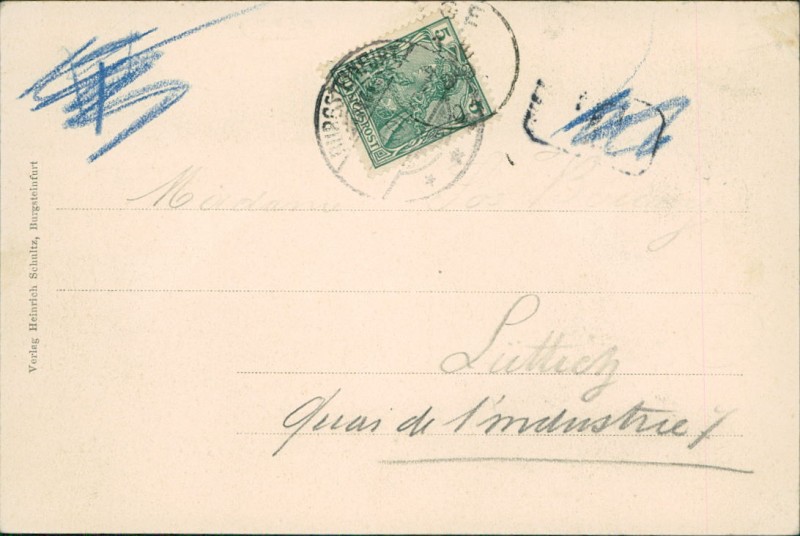 5
BURGSTEINFURT
REICHSPOST
5
Madame
Lüttich
Quai de l'industrie 7
Verlag Heinrich Schultz, Burgsteinfurt